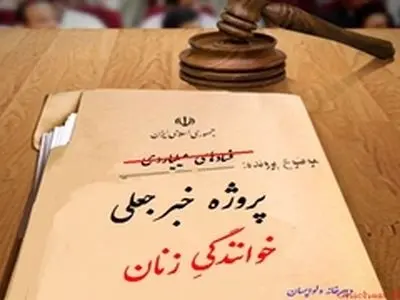 جمهوری اسلامی ایران
موضوع پرونده: فسادهای میلیاردی
پروژه خبر جعلی
خوانندگیِ زنان
دبیرخانه دلواپسان